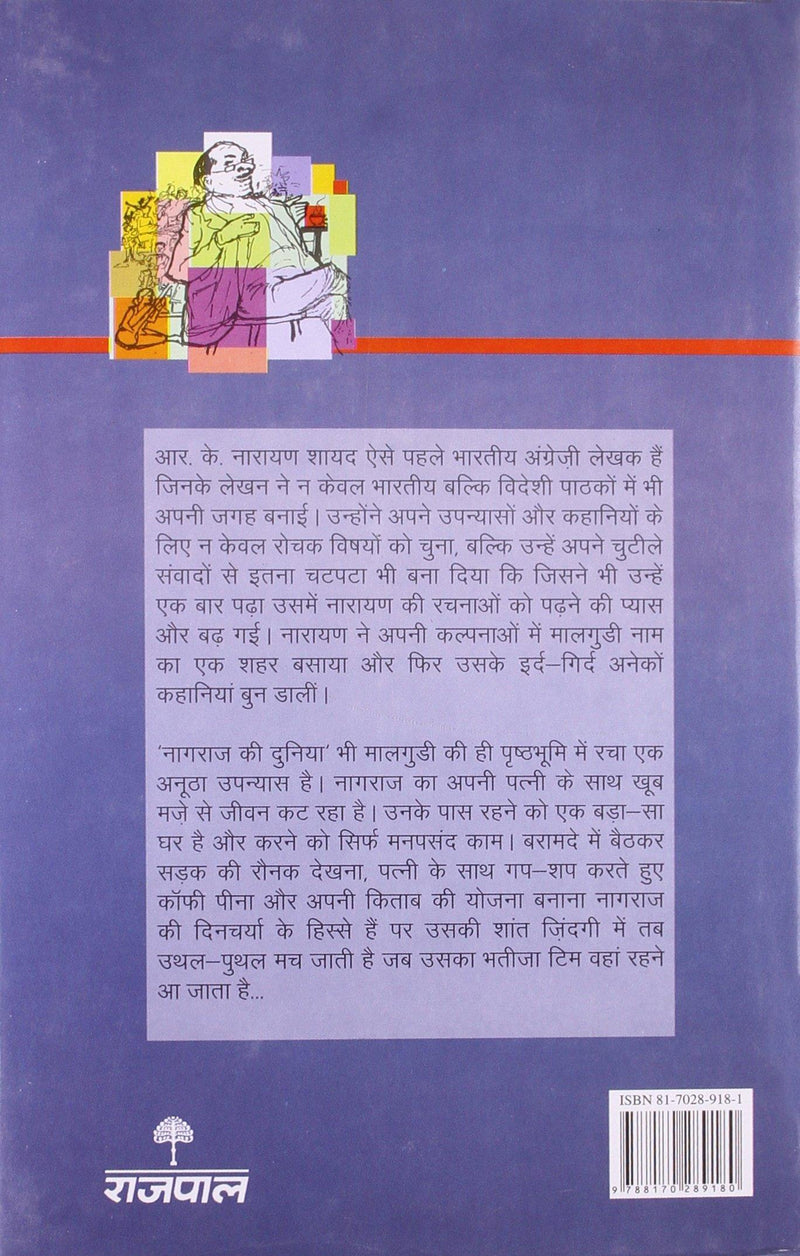 आर. के. नारायण शायद ऐसे पहले भारतीय अंग्रेज़ी लेखक हैं
जिनके लेखन ने न केवल भारतीय बल्कि विदेशी पाठकों में भी
अपनी जगह बनाई। उन्होंने अपने उपन्यासों और कहानियों के
लिए न केवल रोचक विषयों को चुना, बल्कि उन्हें अपने चुटीले
संवादों से इतना चटपटा भी बना दिया कि जिसने भी उन्हें
एक बार पढ़ा उसमें नारायण की रचनाओं को पढ़ने की प्यास
और बढ़ गई। नारायण ने अपनी कल्पनाओं में मालगुडी नाम
का एक शहर बसाया और फिर उसके इर्द–गिर्द अनेकों
कहानियां बुन डालीं।
'नागराज की दुनिया' भी मालगुडी की ही पृष्ठभूमि में रचा एक
अनूठा उपन्यास है। नागराज का अपनी पत्नी के साथ खूब
मज़े से जीवन कट रहा है। उनके पास रहने को एक बड़ा–सा
घर है और करने को सिर्फ मनपसंद काम। बरामदे में बैठकर
सड़क की रौनक देखना, पत्नी के साथ गप–शप करते हुए
कॉफी पीना और अपनी किताब की योजना बनाना नागराज
की दिनचर्या के हिस्से हैं पर उसकी शांत ज़िंदगी में तब
उथल–पुथल मच जाती है जब उसका भतीजा टिम वहां रहने
आ जाता है...
ISBN 81-7028-918-1
9 788170 289180
राजपाल